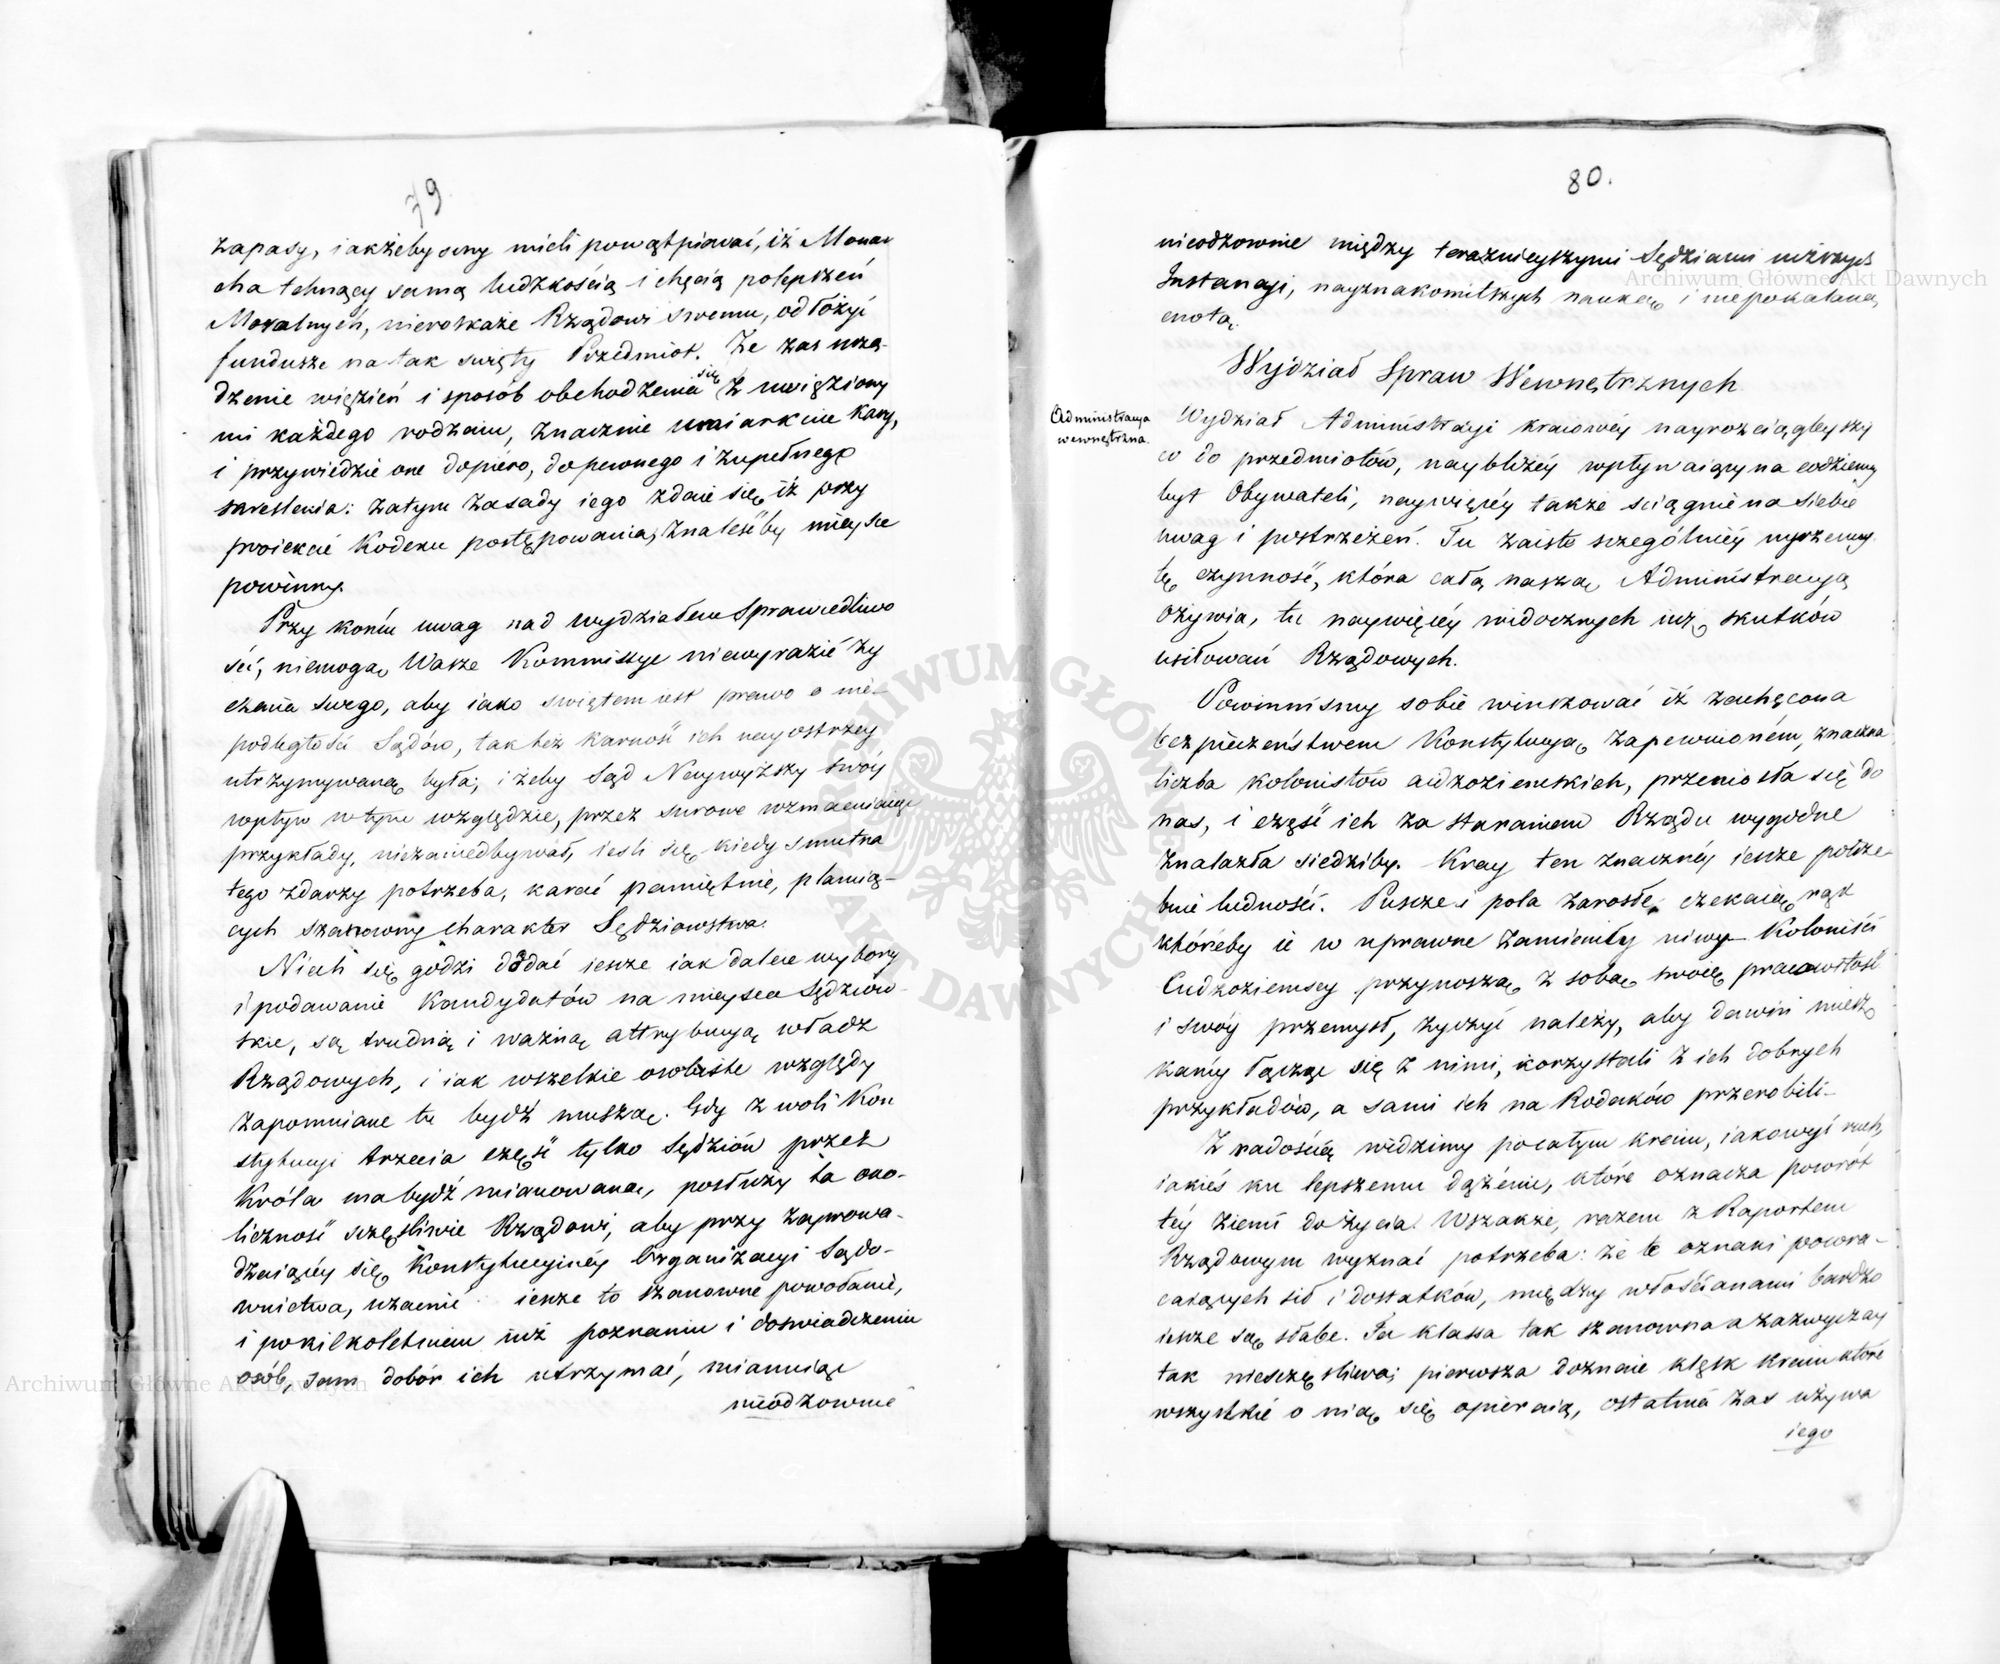 79.
zapasy, iakżebysmy mieli powątpiewać, iż Monar
cha tchnący samą ludzkością i chęcią polepszeń
Moralnych, nieroskaże Rządowi swemu, odłożyć
fundusze na tak swięty Przedmiot. Że zas urzą-
dzenie więzień i sposób obchodzenia się z uwięziony
mi każdego rodzaiu, znacznie umiarkuie kary,
i przywiedzie one dopiéro, do pewnego i zupełnego
skreslenia: zatym zasady iego zdaie się, iż przy
proiekcie Kodexu postępowania, znaleśćby mieysce
powinny.
Przy końcu uwag nad wydziałem Sprawiedliwo
ści, niemogą Wasze Kommissye niewyrazić ży
czenia swego, aby iako swiętem iest prawo o nie-
podległości Sądów, takteż karność ich nayostrzey
utrzymywaną była; i żeby Sąd Naywyższy swóy
wpływ w tym względzie, przez surowe wzmacniaiące
przykłady, niezaniedbywał, iesli się kiedy smutna
tego zdarzy potrzeba, karać pamiętnie, plamią-
cych szanowny charakter Sędziowstwa.
Niech się godzi dodać iesze iak dalece wybory
i podawanie Kandydatów na mieysca Sędziow-
skie, są trudną i ważną attrybucyą władz
Rządowych, i iak wszelkie osobiste względy
zapomniane tu bydź muszą. Gdy z woli Kon
stytucyi trzecia część tylko Sędziów przez
Króla ma bydź mianowana, posłuży ta oko-
liczność szczęśliwie Rządowi, aby przy zaprowa-
dzaiącéy się Konstytucyinéy Organizacyi Sądo-
wnictwa, uzacnić iesze to szanowne powołanie,
i po kilkoletniem iuż poznaniu i doswiadczeniu
osób, sam dobór ich utrzymać, mianuiąc
nieodzownie
80.
nieodzownie między teraznieyszymi Sędziami niższych
Instancyi, nayznakomitszych nauką i niepokalaną
cnotą.
Wydział Spraw Wewnętrznych
Administracya
wewnętrzna.
Wydział Administracyi kraiowéy nayrozciągleyszy
co do przedmiotów, naybliżéy wpływaiący na codzienny
byt Obywateli, naywięcéy także sciągnie na siebie
uwag i postrzeżeń. Tu zaiste szczególniéy uyrzemy
tę czynność, która całą naszą Administracyą
ożywia, tu naywięcéy widocznych iuż skutków
usiłowań Rządowych.
Powinnismy sobie winszować iż zachęcona
bezpieczeństwem Konstytucyą zapewnioném, znaczna
liczba kolonistów cudzoziemskich, przeniosła się do
nas, i część ich za staraniem Rządu wygodne
znalazła siedziby. Kray ten znacznéy iesze potrze-
buie ludności. Puscze i pola zarosłe, czekaią rąk
któréby ie w uprawne zamieniły niwy. Koloniści
Cudzoziemscy przynoszą z sobą swoię pracowitość
i swóy przemysł, życzyć należy, aby dawni miesz
kańcy łącząc się z nimi, korzystali z ich dobrych
przykładów, a sami ich na Rodaków przerobili.
Z radością widzimy po całym kraiu, iakowyś ruch,
iakieś ku lepszemu dążenie, które oznacza powrót
téy ziemi do życia. Wszakże, razem z Raportem
Rządowym wyznać potrzeba: że te oznaki powra-
caiących sił i dostatków, między włościanami bardzo
iesze są słabe. Ta klassa tak szanowna a zazwyczay
tak niesczęśliwa; pierwsza doznaie klęsk kraiu które
wszystkie o nią się opieraią, ostatnia zas używa
iego
Archiwum Główne Akt Dawnych
Archiwum Główne Akt Dawnych
ARCHIWUM GŁÓWNE AKT DAWNYCH